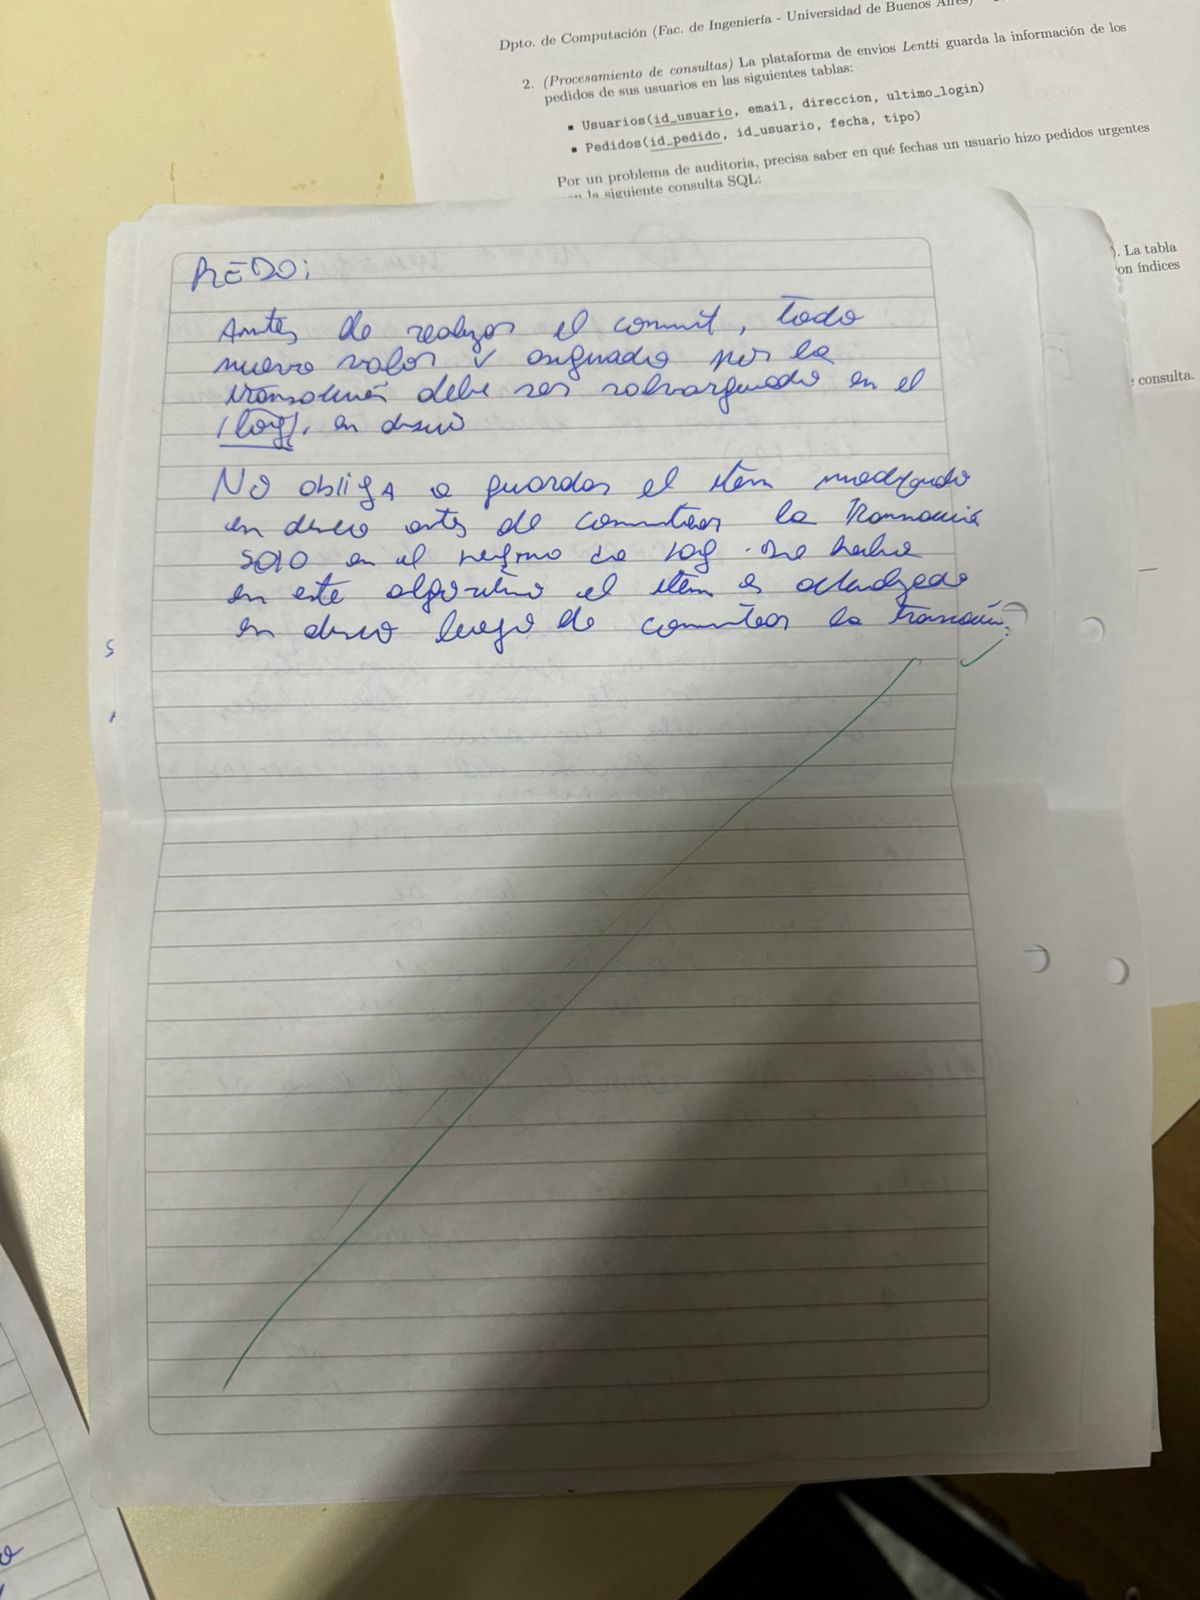 Dpto. de Computación (Fac. de Ingeniería - Universidad de Buenos Aires)
2. (Procesamiento de consultas) La plataforma de envios Lentti guarda la información de los
pedidos de sus usuarios en las siguientes tablas:
▪ Usuarios(id_usuario, email, direccion, ultimo_login)
▪ Pedidos(id_pedido, id_usuario, fecha, tipo)
Por un problema de auditoria, precisa saber en qué fechas un usuario hizo pedidos urgentes
la siguiente consulta SQL:
). La tabla
on índices
consulta.
REDO:
Antes de realizar el commit, todo
nuevo valor v asignado por la
transacción debe ser salvaguardado en el
log, en disco
No obliga a guardar el item modificado
en disco antes de commitear la transacción
solo en el log. De hecho
en este algoritmo el item es actualizado
en disco luego de commitear la transacción.